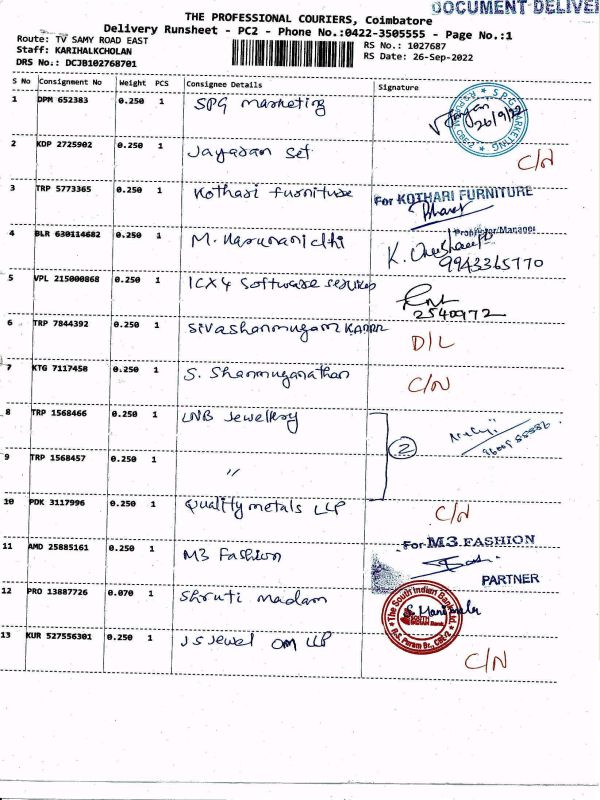 DOCUMENT DELIVE
THE PROFESSIONAL COURIERS, Coimbatore
Delivery Runsheet - PC2 - Phone No.:0422-3505555 - Page No.:1
Route: TV SAMY ROAD EAST
RS No.: 1027687
Staff: KARIHALKCHOLAN
RS Date: 26-Sep-2022
DRS No.: DCJB102768701
S No Consignment No Weight PCS Consignee Details Signature
1 DPM 652383 0.250 1 SPG marketing 26/9/22
SPG MARKETING
2 KDP 2725902 0.250 1 Jayaram Set C/N
3 TRP 5773365 0.250 1 Kothari furniture For KOTHARI FURNITURE
Bharat
Proprietor/Manager
4 BLR 630114682 0.250 1 M. Karunanidhi K.
9943365770
5 VPL 215000868 0.250 1 ICX4 Software services
2540972
6 TRP 7844392 0.250 1 Sivashanmugam D/L
7 KTG 7117458 0.250 1 S. Shanmuganathan C/N
8 TRP 1568466 0.250 1 LNB Jewellery
2
9 TRP 1568457 0.250 1 "
10 PDK 3117996 0.250 1 Quality metals LLP C/N
11 AMD 25885161 0.250 1 M3 Fashion For M3 FASHION
PARTNER
12 PRO 13887726 0.070 1 Shruti madam S. Manimala
The South Indian Bank Ltd.
SOUTH INDIAN Bank
R.S. Puram Br., CBE-2
13 KUR 527556301 0.250 1 JS Jewel OM LLP C/N